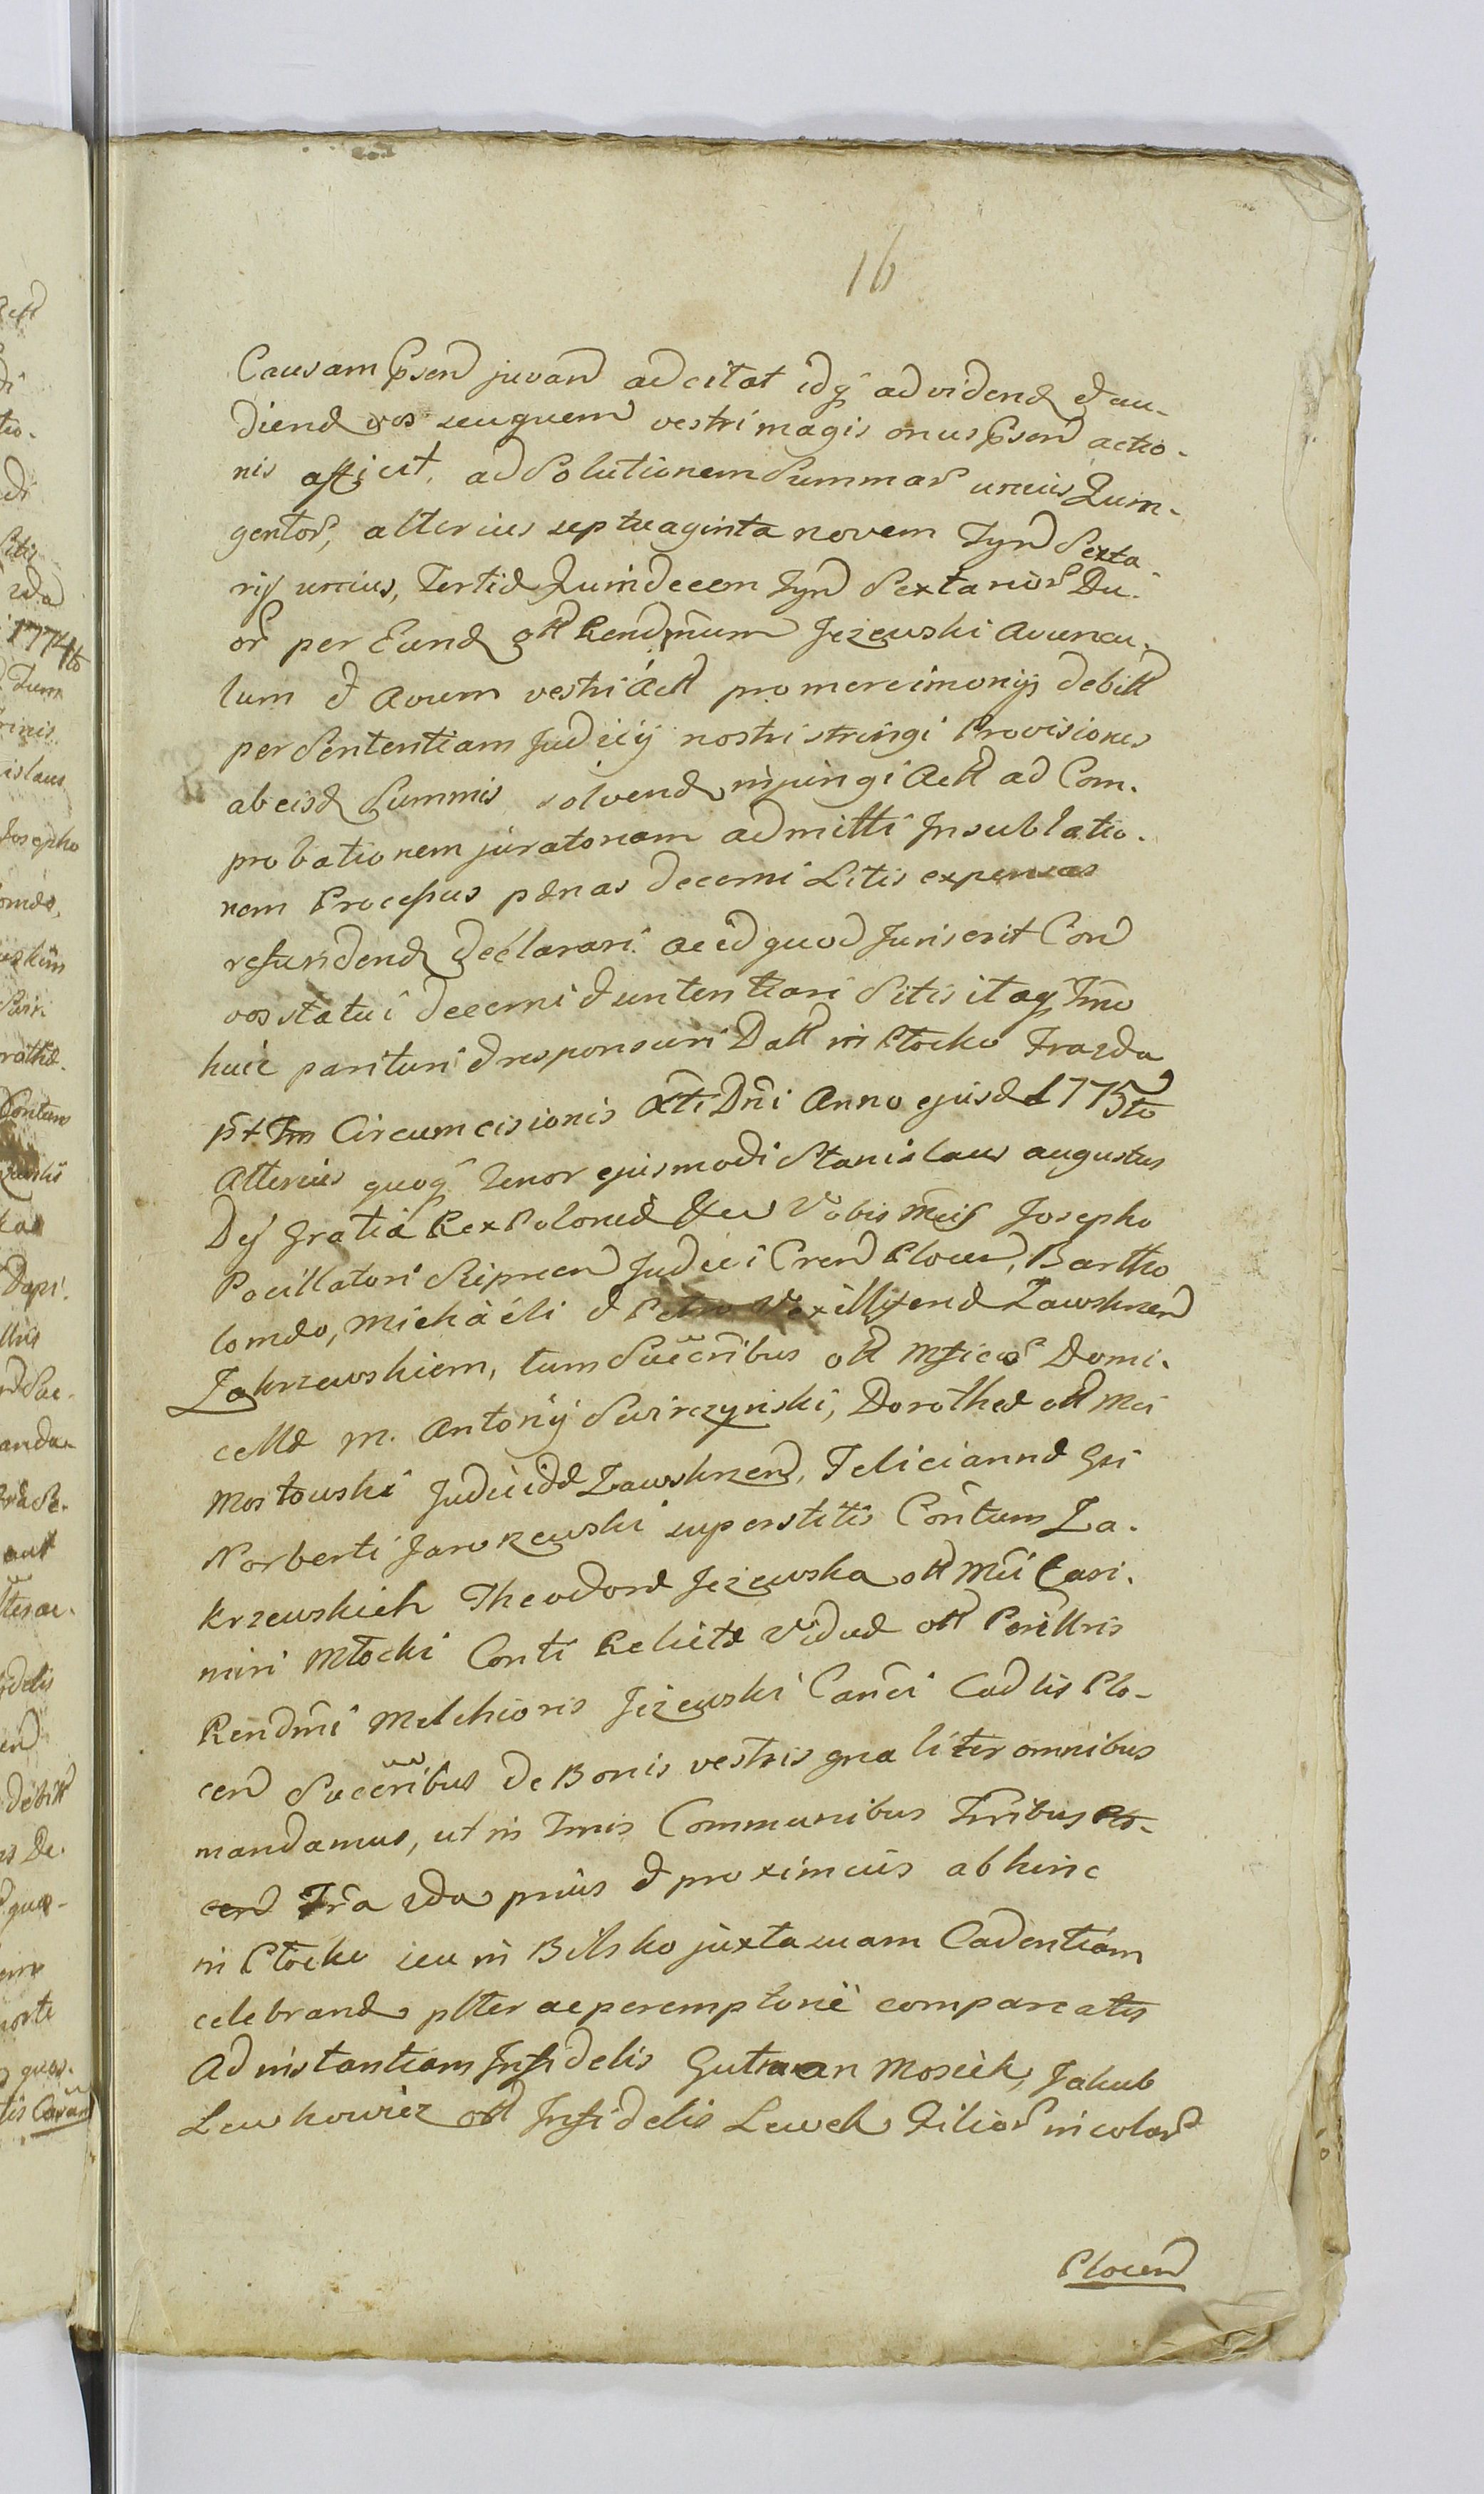 16
Causam Psen juvan adcitat idq ad vidend et au-
diend vos seuquem vestri magis onus Psen actio-
nis afficit, ad Solutionem Summar unius Quin-
gentor, alterius septuaginta novem Tyn Sexta-
rij unius, Tertiæ Quindecem Tyn Sextarior Du-
or per Eund ott Rendmum Jezewski avuncu-
lum et avum vestri actt pro mercimonijs debitt
per Sententiam Judicij nostri stringi Provisiones
ab eisd Summis solvend injungi actt ad Com-
probationem juratoriam admitti In sublatio-
nem Processus pænas decerni Litis expensas
refundend declarari ac id quod Juris erit Con
vos statui decerni et sententiari Sitis itaq Tmo
huic parituri et responsuri Datt in Płocko Fra 2da
pst Fm Circumcisionis Xti Dni Anno ejusd 1775to
Alterius quoq Tenor ejusmodi Stanislaus augustus
Dej Gratia Rex Poloniæ &cu Vobis Mcis Josepho
Pocillatori Sieprcen Judici Cren Plocen, Bartho
lomæo, Michaeli et Petro Vexilliferid Zawskrzen
Zakrzewskiem, tum Succribus ott Mficar Domi-
cellæ m. Antonij Swirczynski, Dorotheæ ott Mci
Mostowski Judicidæ Zawskrzen, Feliciannæ Gsi
Norberti Jarorzewski superstitis Contum Za-
krzewskich Theodoræ Jezewska ott Mci Casi-
miri Młocki Conti Relictæ Viduæ ott Perillris
Rendmi Melchioris Jezewski Canci Cadlis Plo-
cen Succribus de Bonis vestris gnaliter omnibus
mandamus, ut in Tmis Communibus Trribus Plo-
cen Fra 2da prius et proximius abhinc
in Płocko seu in Bilsko juxta suam Cadentiam
celebrand pltter ac peremptorie compareatis
Ad instantiam Infidelis Gutman Mosiek, Jakub
Lewkowicz ott Infidelis Lewek Filior incolar
Plocen